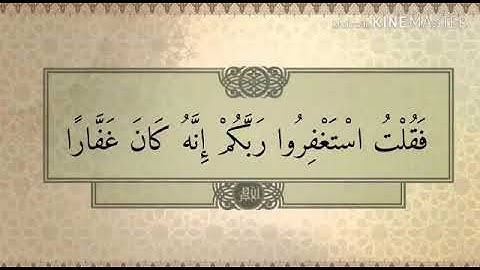 KINEMASTER
فَقُلْتُ اسْتَغْفِرُوا رَبَّكُمْ إِنَّهُ كَانَ غَفَّارًا